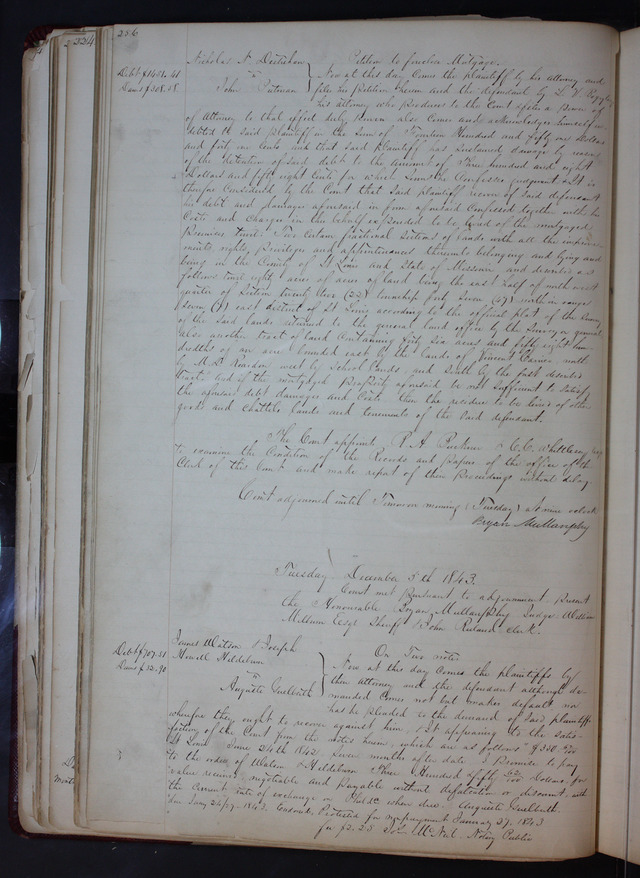 256
234
Nicholas N. Destrehan Petition to foreclose Mortgage.
Debt $1451.41 vs Now at this day Comes the plaintiff by his Attorney and
Dam $308.58 John Putman files his petition herein and the defendant by
his attorney who produces to the Court after a Power of
of Attorney to that effect duly proven also Comes and acknowledges himself in-
debted to said plaintiff in the Sum of Fourteen Hundred and fifty one Dollars
and forty one Cents and that said plaintiff has sustained damage by reason
of the detention of said debt to the amount of Three hundred and eight
Dollars and fifty eight Cents for which Sums he Confesses judgment. It is
therefore Considered by the Court that Said plaintiff recover of Said defendant
his debt and damages aforesaid in form aforesaid Confessed together with his
Costs and Charges in this behalf expended to be levied of the mortgaged
Premises to wit: Two Certain fractional Sections of Lands with all the improve-
ments, rights, privileges and appurtenances thereunto belonging and lying and
being in the County of St Louis and State of Missouri and described as
follows to wit eighty acres of land being the east half of north west
quarter of Section twenty two (22) township forty Seven (47) north in range
Seven (7) east district of St Louis according to the official plat of the Survey
of the Said lands returned to the general land office by the Surveyor general
also another tract of land Containing fifty Six acres and fifty eight hun-
dredths of an acre bounded east by the lands of Vincent Carrico north
by Reardon west by School lands, and South by the first described
tract and if the mortgaged Property aforesaid be not Sufficient to Satisfy
the aforesaid debt damages and Costs then the residue to be levied of other
goods and Chattels lands and tenements of the Said defendant.
The Court appoints R. A. & C. C. Whittlesey Esqs
to examine the Condition of the Records and papers of the office of the
Clerk of this Court and make report of their Proceedings without delay
Court adjourned until Tomorrow morning (Tuesday) at nine oclock
Bryan Mullanphy
Tuesday December 5th 1843.
Court met pursuant to adjournment. Present
the Honourable Bryan Mullanphy Judge William
Milburn Esqr Sheriff & John Ruland Clerk.
James Watson & Joseph
Debt $707.51 Howell Hildeburn On Two notes
Dam $12.90 vs Now at this day Comes the plaintiffs by
Auguste Guelberth their Attorney and the defendant although de-
manded Comes not but makes default nor
has he pleaded to the demand of Said plaintiffs
wherefore they ought to recover against him, it appearing to the satis-
faction of the Court from the notes herein, which are as follows "$350
St Louis June 24th 1842. Seven months after date I Promise to pay
to the order of Watson & Hildeburn Three Hundred fifty Dollars for
value received negotiable and payable without defalcation or discount, with
the Current rate of exchange on Philada when due. Auguste Guelberth.
due Jany 24/27 1843. Endorsed, Protested for nonpayment January 27. 1843
fee $2.25 McNeil Notary Public